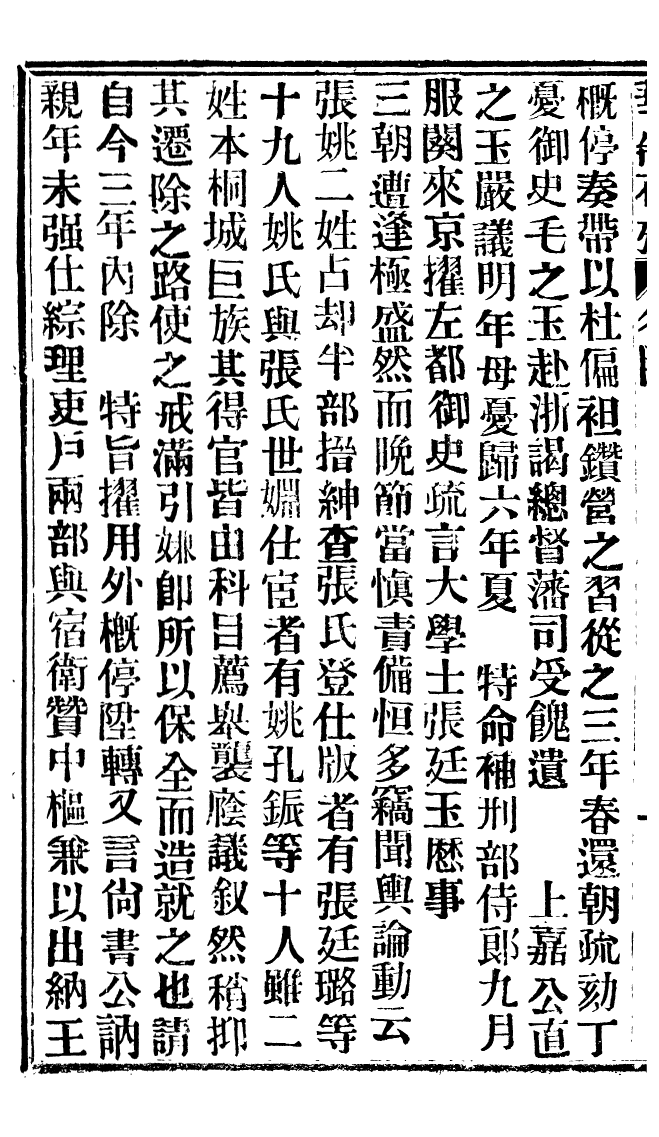 概停奏帶以杜偏袒鑽營之習從之三年春還朝疏劾丁
憂御史毛之玉赴浙謁總督藩司受餽遺　上嘉公直
之玉嚴議明年母憂歸六年夏　特命補刑部侍郎九月
服闋來京擢左都御史疏言大學士張廷玉歷事
三朝遭逢極盛然而晚節當慎責備恒多竊聞輿論動云
張姚二姓占却半部搢紳查張氏登仕版者有張廷璐等
十九人姚氏與張氏世婣仕宦者有姚孔鋠等十人雖二
姓本桐城巨族其得官皆由科目薦舉襲廕議叙然稍抑
其遷除之路使之戒滿引嫌卽所以保全而造就之也請
自今三年內除　特旨擢用外槪停陞轉又言尙書公訥
親年未强仕綜理吏戶兩部與宿衛贊中樞兼以出納王